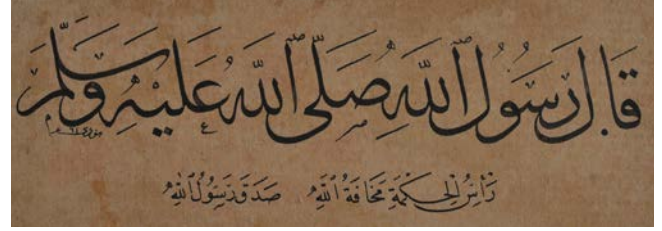 قَالَ رَسُولُ اللّٰهِ صَلَّى اللّٰهُ عَلَيْهِ وَسَلَّمَ
رَأْسُ الْحِكْمَةِ مَخَافَةُ اللّٰهِ صَدَقَ رَسُولُ اللّٰهِ